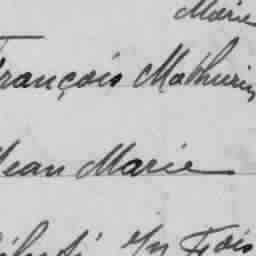 Marie
François Mathurin
Jean Marie